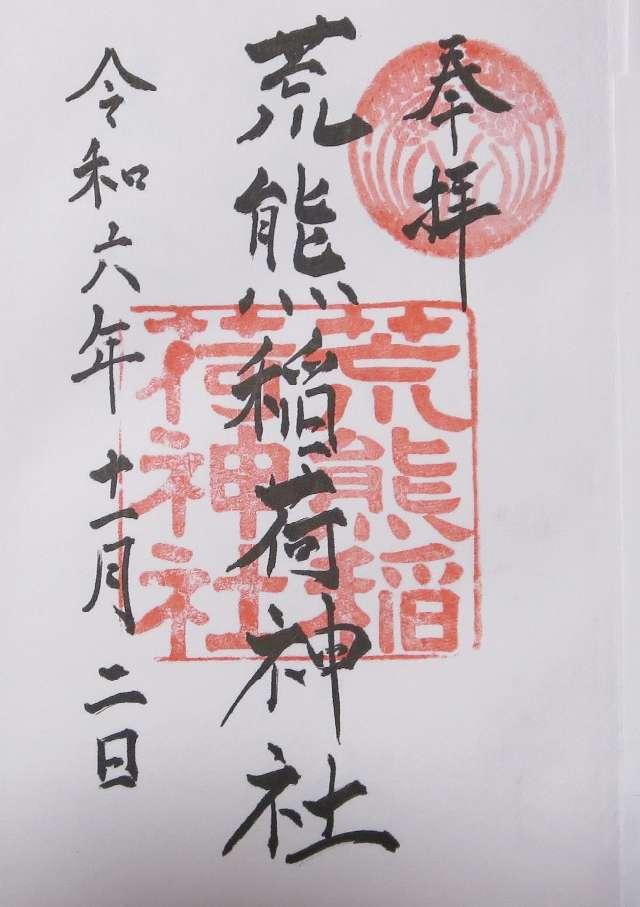 奉拝
荒熊稲荷神社
荒熊稲
荷神社
令和六年十一月二日